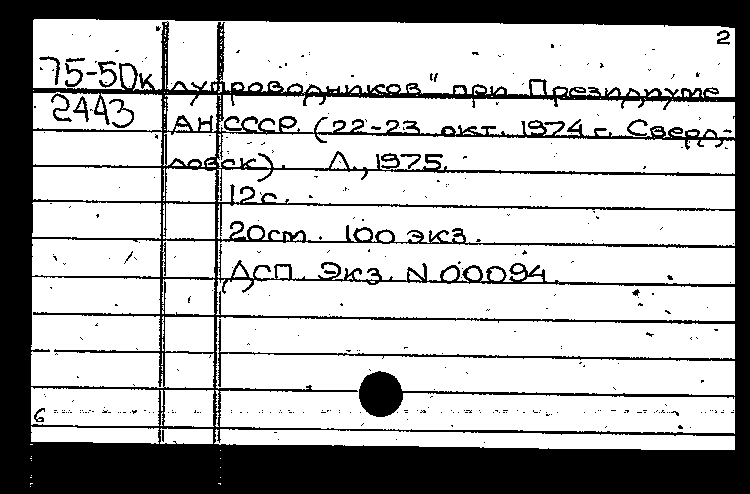 2
75-50к лупроводников" при Президиуме
2443 АН СССР. (22-23 окт. 1974 г. Сверд-
ловск). Л., 1975.
12с.
20см. 100 экз.
ДСП. Экз. N 00094
6